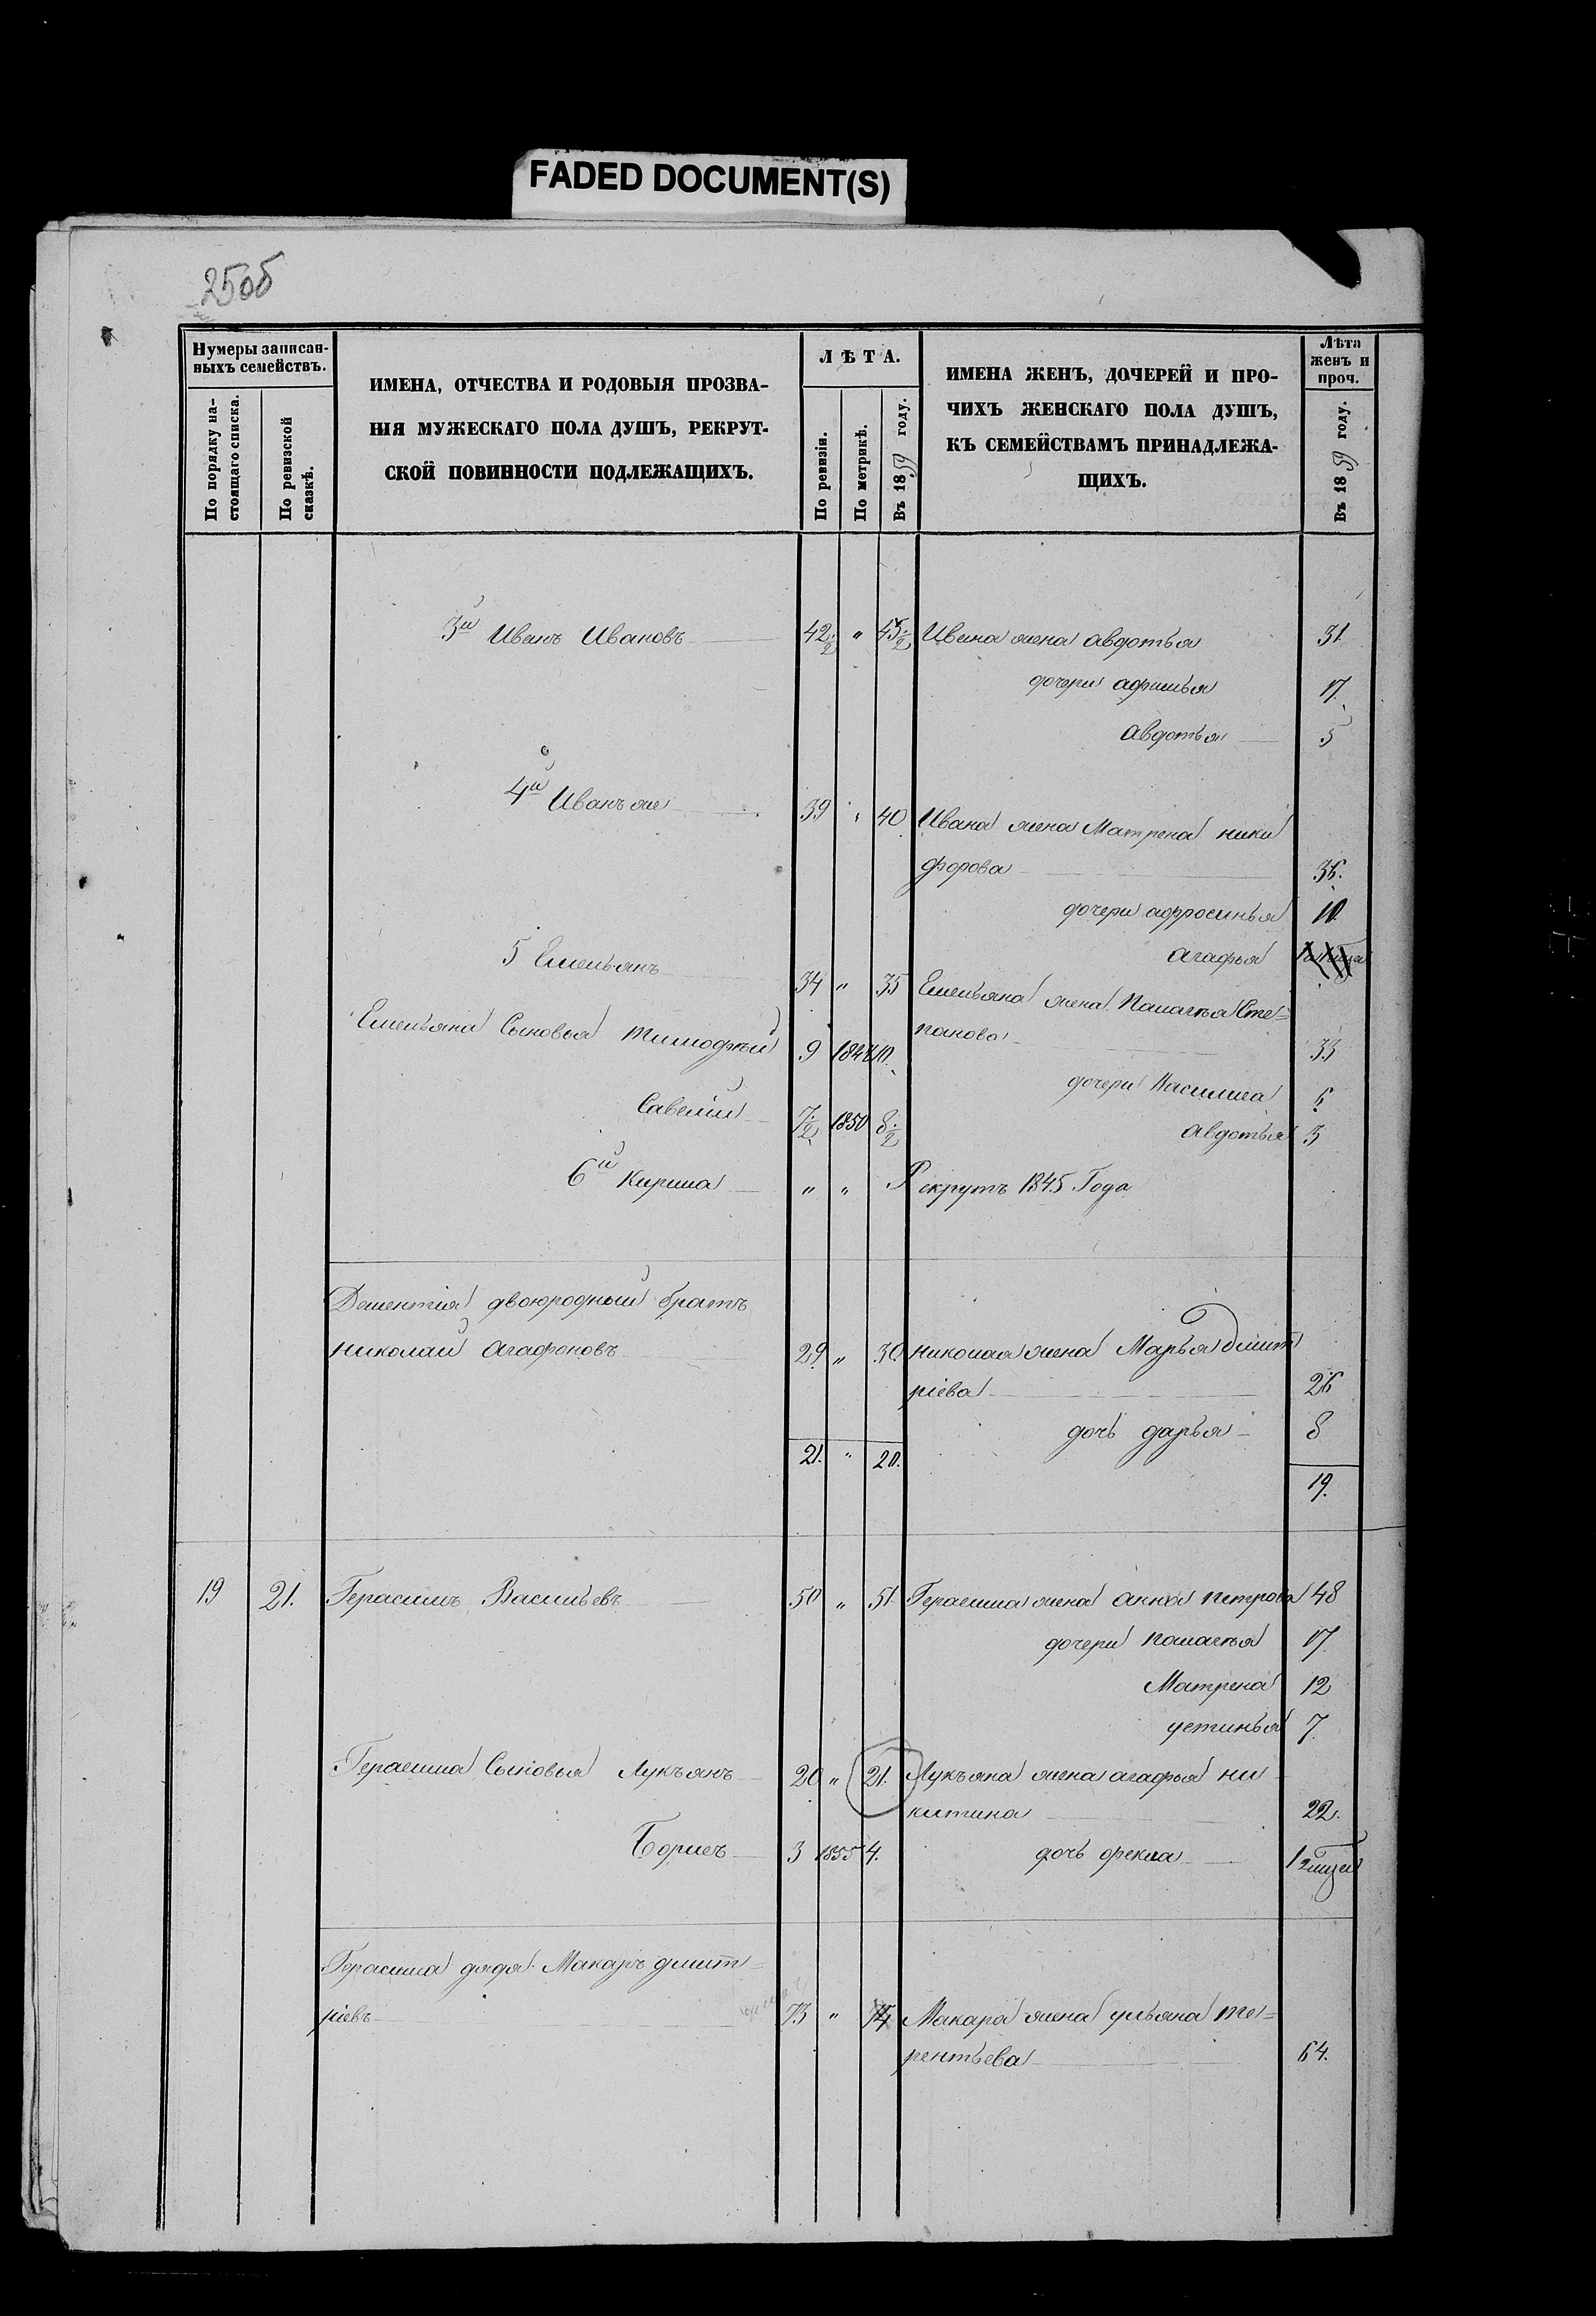 FADED DOCUMENT(S)
250б
Нумеры записан-
ныхъ семействъ.
По порядку на-
стоящаго списка.
По ревизской
сказкѣ.
ИМЕНА, ОТЧЕСТВА И РОДОВЫЯ ПРОЗВА-
НІЯ МУЖЕСКАГО ПОЛА ДУШЪ, РЕКРУТ-
СКОЙ ПОВИННОСТИ ПОДЛЕЖАЩИХЪ.
ЛѢТА.
По ревизіи.
По метрикѣ.
Въ 1859 году.
ИМЕНА ЖЕНЪ, ДОЧЕРЕЙ И ПРО-
ЧИХЪ ЖЕНСКАГО ПОЛА ДУШЪ,
КЪ СЕМЕЙСТВАМЪ ПРИНАДЛЕЖА-
ЩИХЪ.
Лѣта
женъ и
проч.
Въ 1859 году.
3й Иванъ Ивановъ 42 1/2 " 43 1/2 Ивана жена авдотья 31
дочери афимья 17
Авдотья 5
4й Иванъ же 39 " 40 Ивана жена Матрена ники
форова 36.
дочери афросинья 10
агафья
5 Емельянъ 34 " 35 Емельяна жена Палагѣя Сте=
панова 33
Емельяна Сыновья тимофѣй 9 1848 10.
дочери Василиса 6
Савелій 7 1/2 1850 8 1/2 авдотья 3
6й Кирила " " Рекрутъ 1845 Года
Дементія двоюродный братъ
николай Агафоновъ 29 " 30 николая жена Марья дмит
ріева 26
дочь дарья 8
21. " 20.
19.
19 21. Герасимъ Васильевъ 50 " 51 Герасима жена анна петрова 48
дочери палагѣя 17
Матрена 12
устинья 7
Герасима Сыновья Лукъянъ 20 " 21. Лукъяна жена агафья ни
китина 22.
Борисъ 3 1855 4. дочь фекла 1/2 мца
Герасима дядя Макаръ дмит=
ріевъ 73 " 74 Макара жена ульяна те=
рентьева 64.